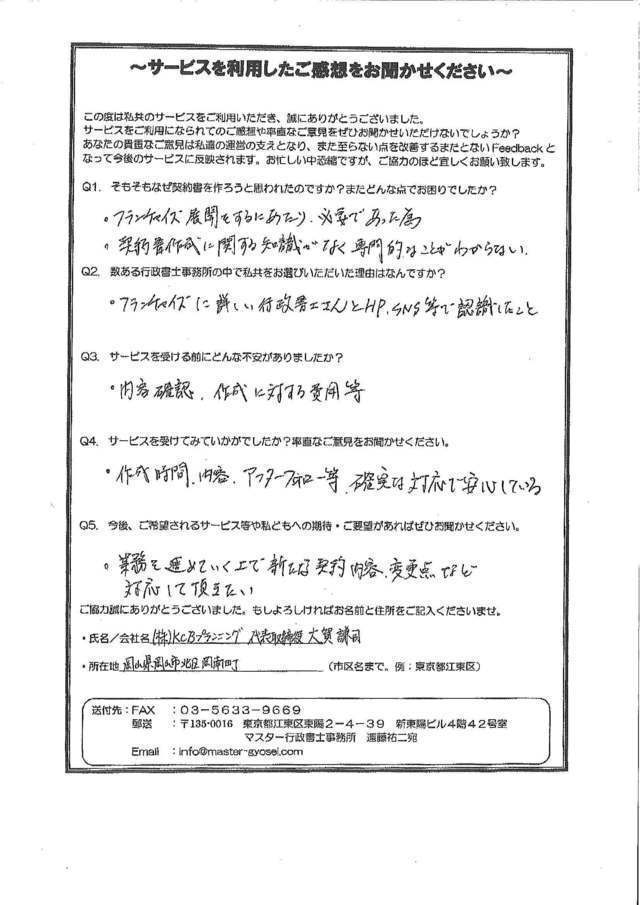 ～サービスを利用したご感想をお聞かせください～
この度は私共のサービスをご利用いただき、誠にありがとうございました。
サービスをご利用になられてのご感想や率直なご意見をぜひお聞かせいただけないでしょうか？
あなたの貴重なご意見は私達の運営の支えとなり、また至らない点を改善するまたとないFeedbackと
なって今後のサービスに反映されます。お忙しい中恐縮ですが、ご協力のほど宜しくお願い致します。
Q1. そもそもなぜ契約書を作ろうと思われたのですか？またどんな点でお困りでしたか？
・フランチャイズ展開をするにあたり、必要であった為
・契約書作成に関する知識がなく専門的なことがわからない.
Q2. 数ある行政書士事務所の中で私共をお選びいただいた理由はなんですか？
・フランチャイズに詳しい行政書士さんとHP、SNS等で認識したこと
Q3. サービスを受ける前にどんな不安がありましたか？
・内容確認、作成に対する費用等
Q4. サービスを受けてみていかがでしたか？率直なご意見をお聞かせください。
・作成時間、内容、アフターフォロー等、確実な対応で安心している
Q5. 今後、ご希望されるサービス等や私どもへの期待・ご要望があればぜひお聞かせください。
・業務を進めていく上で新たな契約内容、変更点など
対応して頂きたい
ご協力誠にありがとうございました。もしよろしければお名前と住所をご記入くださいませ。
・氏名／会社名 (株)KCBプランニング 代表取締役 大賀 謙司
・所在地 岡山県岡山市北区岡南町 （市区名まで。例：東京都江東区）
送付先：FAX ：03-5633-9669
郵送 ：〒135-0016 東京都江東区東陽2-4-39 新東陽ビル4階42号室
マスター行政書士事務所 遠藤祐二宛
Email ：info@master-gyosei.com